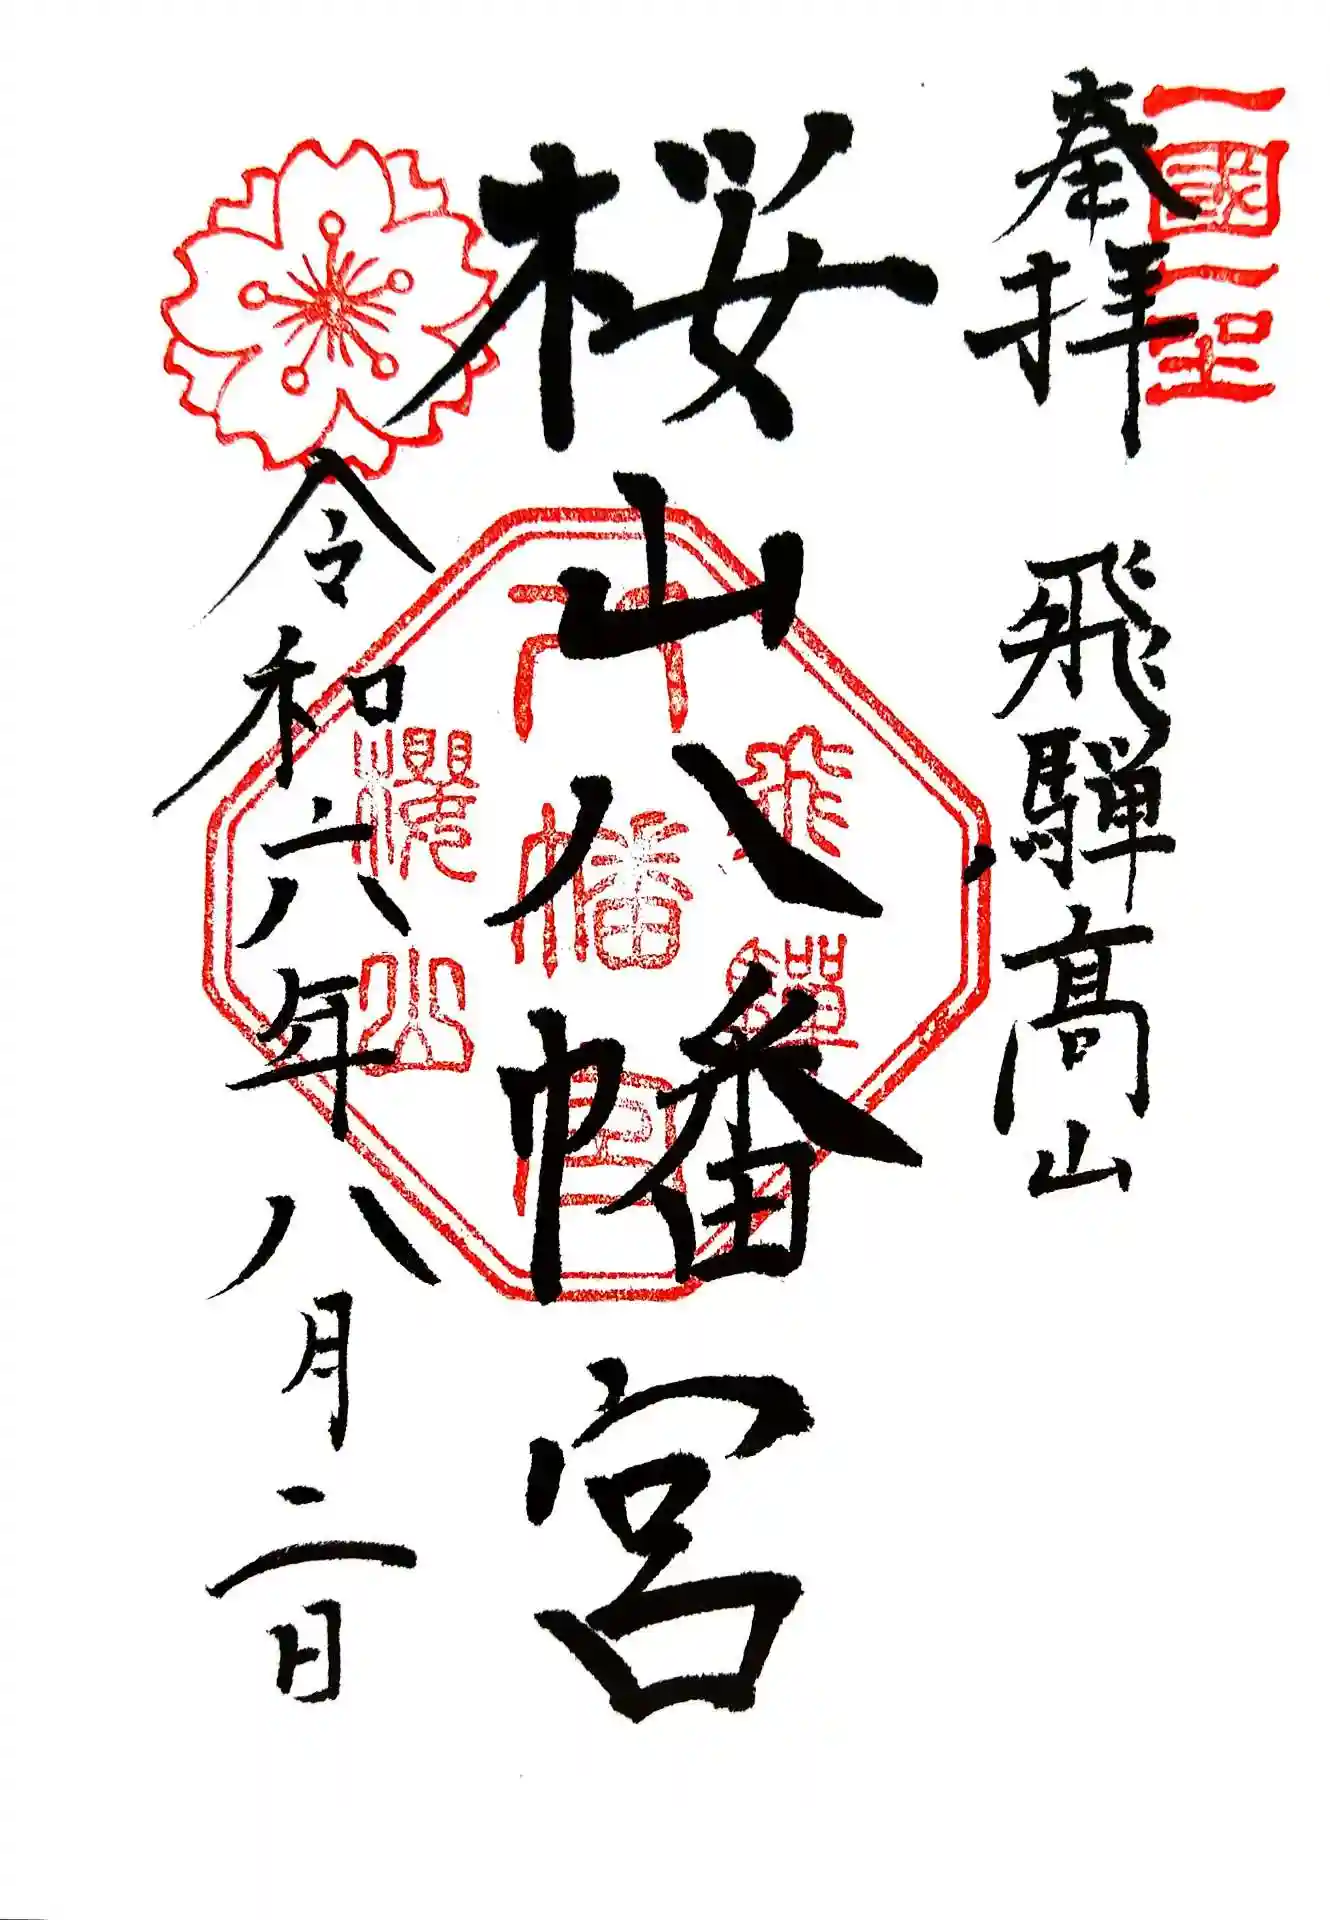 一國一社
奉拝
飛騨高山
桜山八幡宮
飛騨
八幡宮
櫻山
令和六年八月二日